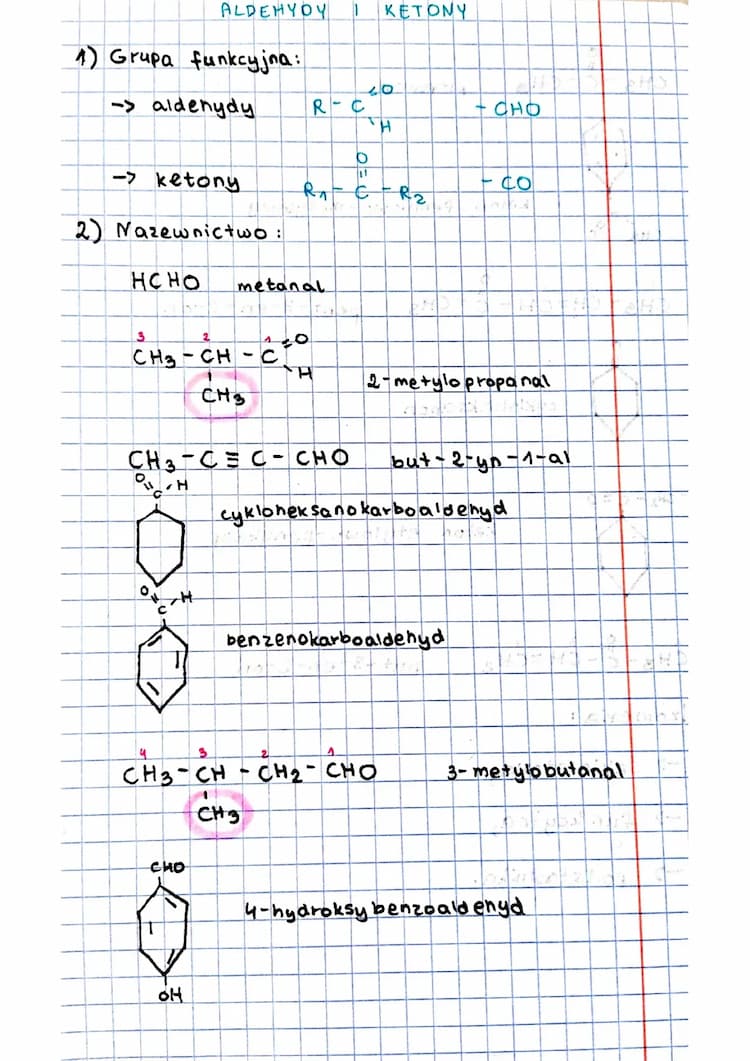 ALDEHYDY I KETONY
1) Grupa funkcyjna:
-> aldehydy R - C =O \H - CHO
-> ketony R1 - C - R2 - CO
O
=
2) Nazewnictwo:
HCHO metanal
3 2 1
CH3 - CH - C =O \H
CH3
2-metylopropanal
CH3 - C ≡ C - CHO but-2-yn-1-al
O = C - H
cykloheksanokarboaldehyd
O = C - H
benzenokarboaldehyd
4 3 2 1
CH3 - CH - CH2 - CHO 3-metylobutanal
CH3
CHO
4-hydroksybenzoaldehyd
OH